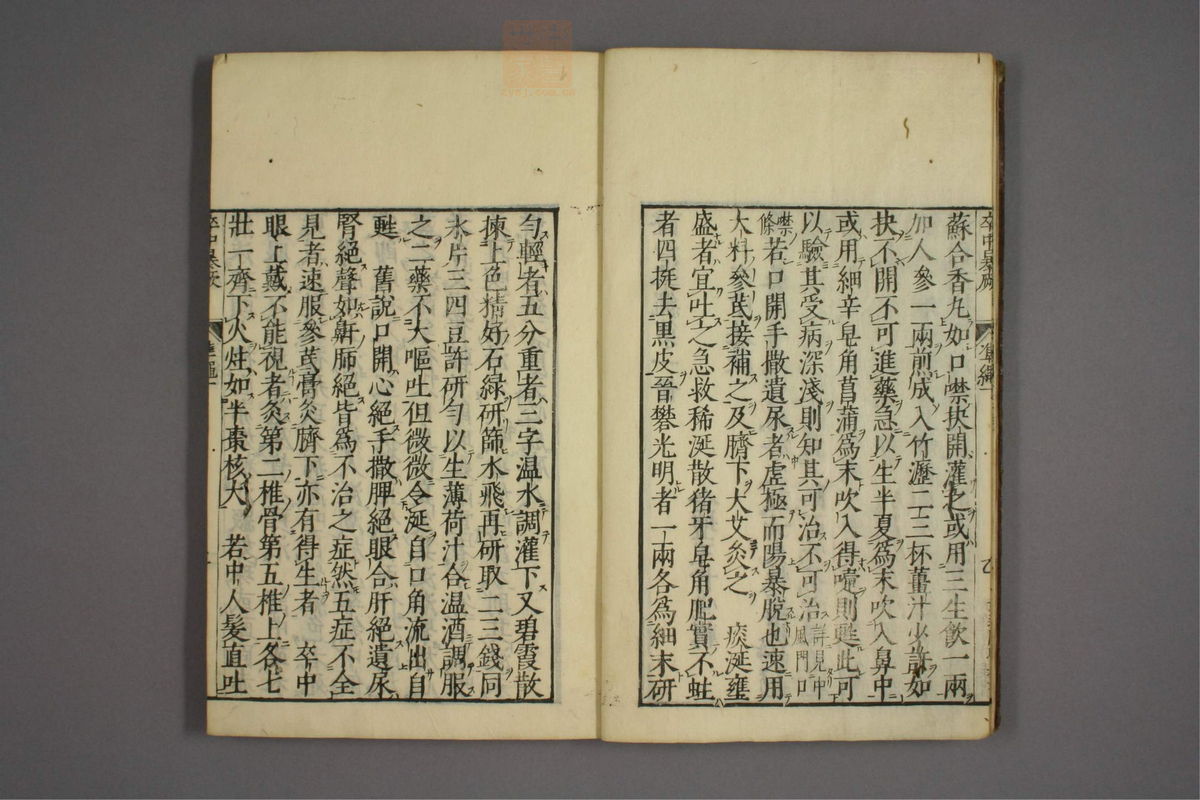 蘇合香丸如口噤抉開灌之或用三生飲一兩
加人參一兩煎成入竹瀝二三杯薑汁少許如
抉不開不可進藥急以生半夏爲末吹入鼻中
或用細辛皂角菖蒲爲末吹入得嚏則甦此可
以驗其受病深淺則知其可治不可治詳見中風門口
噤條若口開手撒遺尿者虛極而陽暴脫也速用
大料參芪接補之及臍下大艾灸之 痰涎壅
盛者宜吐之急救稀涎散猪牙皂角肥實不蛀
者四挺去黒皮晉礬光明者一兩各爲細末研
勻輕者五分重者三字温水調灌下又碧霞散
揀上色精好石緑研篩水飛再研取二三錢同
氷片三四豆許研勻以生薄荷汁合温酒調服
之二藥不大嘔吐但微微令涎自口角流出自
甦 舊說口開心絕手撒脾絕眼合肝絕遺尿
腎絕聲如鼾肺絕皆爲不治之症然五症不全
見者速服參芪膏灸臍下亦有得生者 卒中
眼上戴不能視者灸第二椎骨第五椎上各七
壯一齊下火炷如半棗核大 若中人髮直吐
卒中暴厥
準繩一
zysj.com.cn